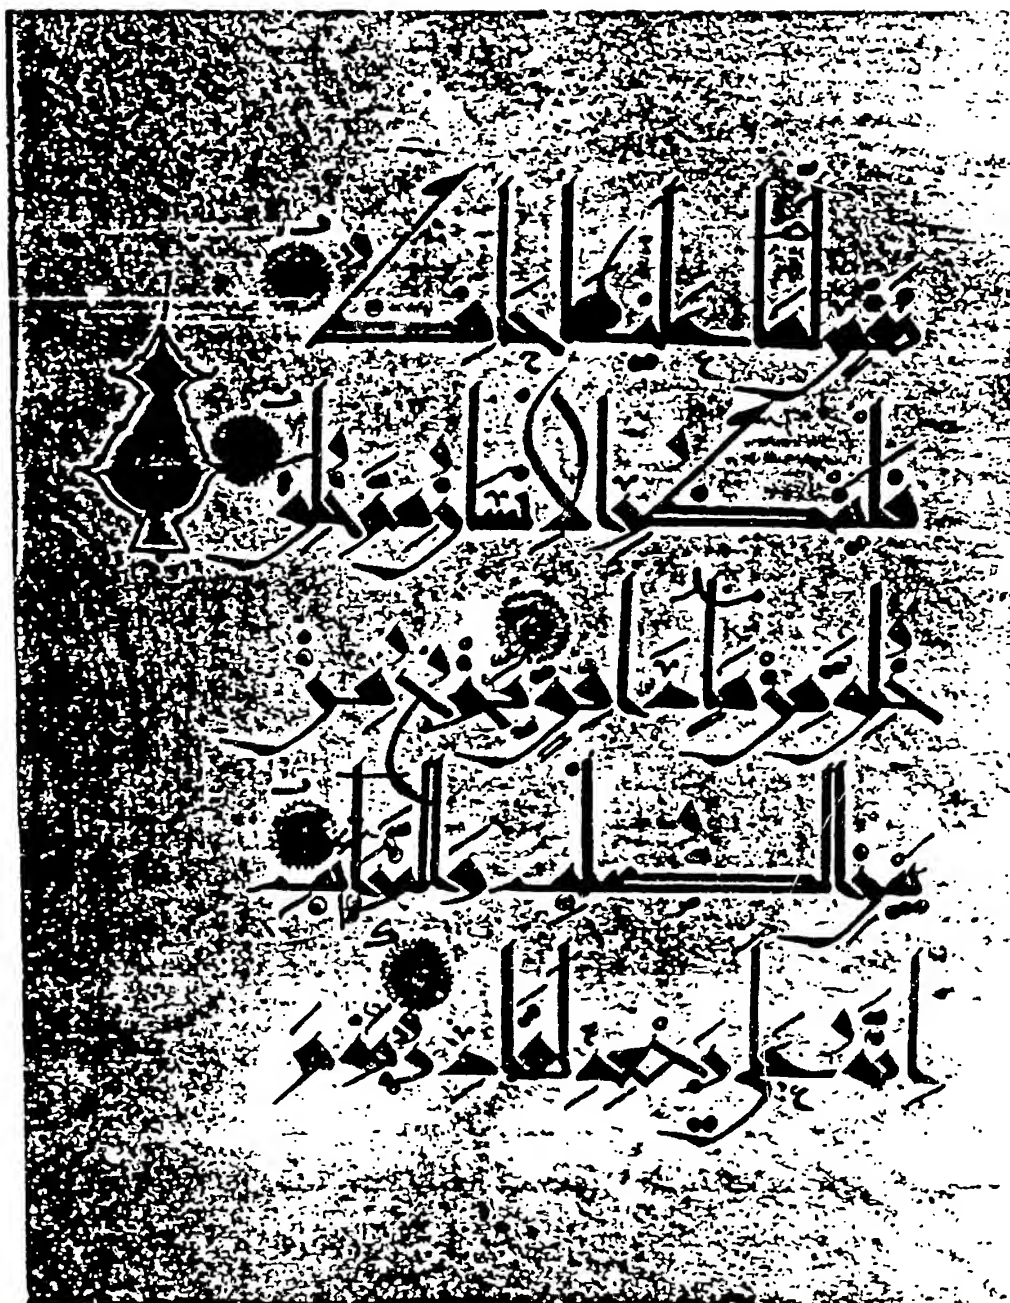 نَفْسٍ لَمَّا عَلَيْهَا حَافِظٌ
فَلْيَنظُرِ الْإِنسَانُ مِمَّ خُلِقَ
خُلِقَ مِن مَّاءٍ دَافِقٍ يَخْرُجُ مِن
بَيْنِ الصُّلْبِ وَالتَّرَائِبِ
إِنَّهُ عَلَى رَجْعِهِ لَقَادِرٌ يَوْمَ